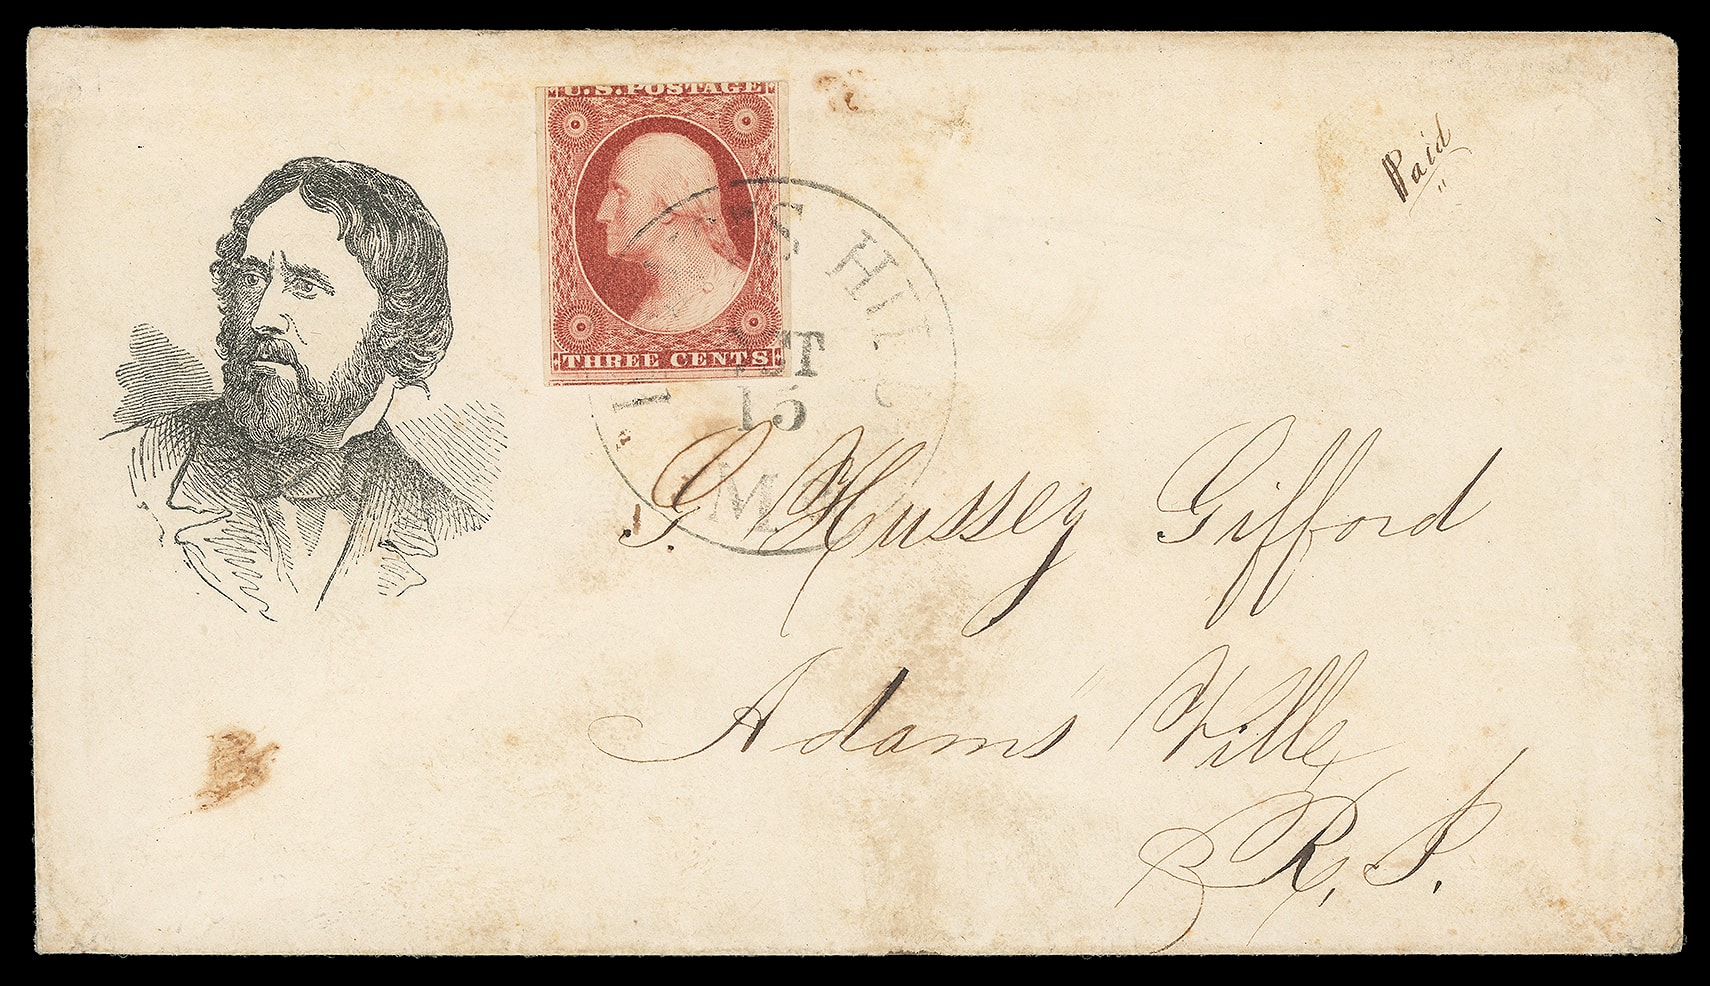 U.S. POSTAGE
THREE CENTS
Paid
S HIL
15
M
G. Hussey Gifford
Adams' Ville
R. I.